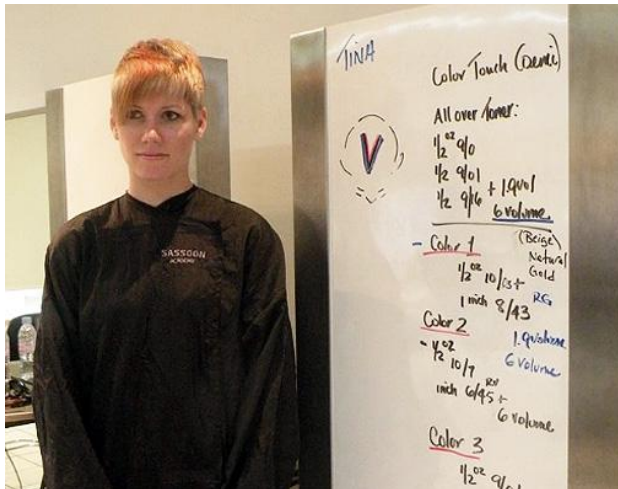 SASSOON
ACADEMY
TINA
Color Touch (Demi)
All over Toner:
1/2 oz 9/0
1/2 9/01
1/2 9/16 + 1.9 vol
6 volume
V
- Color 1
(Beige)
Natural
Gold
1/2 oz 10/03 +
1 inch 8/43
RG
Color 2
- 1/2 oz
10/7
inch 6/45 +
RV
6 volume
6 Volume
Color 3
1/2 oz